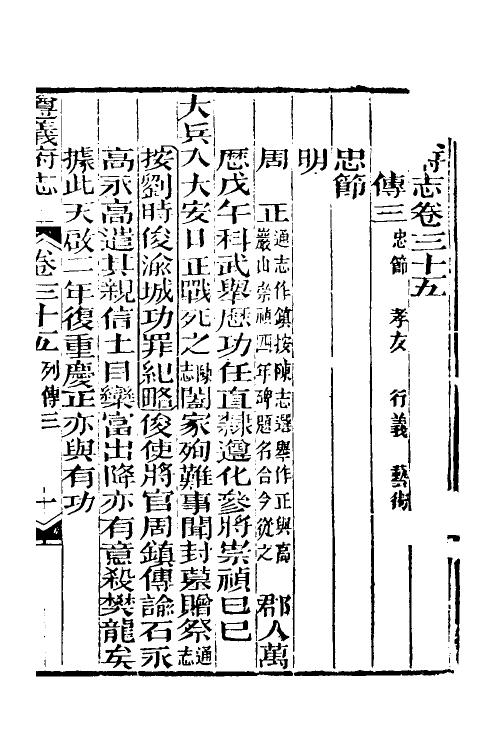 府志卷三十五
傳三 忠節 孝友 行義 藝術
忠節
明
周 正 通志作鎮按陳志選舉作正與高
巖山崇禎四年碑題名合今從之 郡人萬
歷戊午科武舉歷功任直隸遵化參將崇禎己巳
大兵入大安口正戰死之 陳志 闔家殉難事聞封墓贈祭 通志
按劉時俊渝城功罪紀略俊使將官周鎮傳諭石永
高永高遣其親信土目欒富出降亦有意殺樊龍矣
據此天啟二年復重慶正亦與有功
遵義府志 卷三十五 列傳三 十